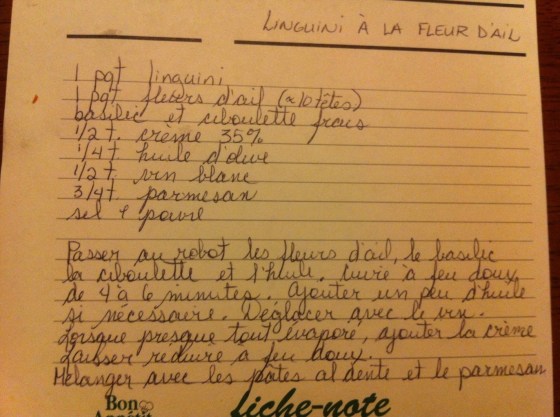 LINGUINI À LA FLEUR D'AIL
1 pqt linguini
1 pqt fleurs d'ail (≈10 têtes)
basilic et ciboulette frais
1/2 t. crème 35%
1/4 t. huile d'olive
1/2 t. vin blanc
3/4 t. parmesan
sel & poivre
Passer au robot les fleurs d'ail, le basilic
la ciboulette et l'huile. Cuire à feu doux
de 4 à 6 minutes. Ajouter un peu d'huile
si nécessaire. Déglacer avec le vin.
Lorsque presque tout évaporé, ajouter la crème
Laisser réduire à feu doux.
Mélanger avec les pâtes al dente et le parmesan
Bon
Appétit
fiche-note